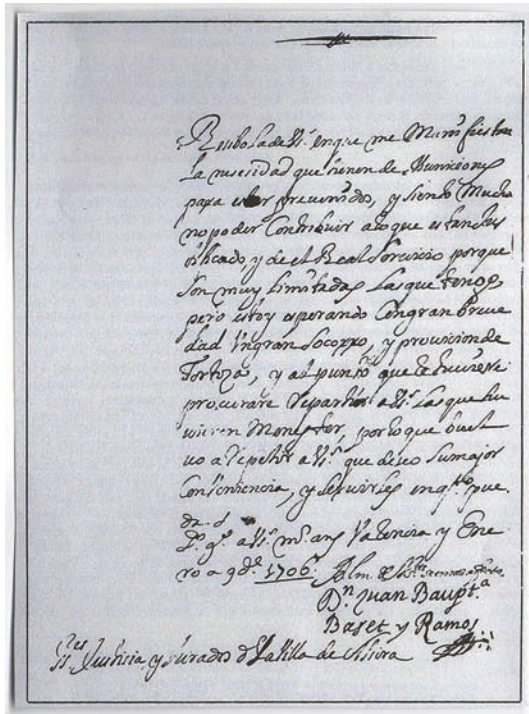 Resibo la de Vs. en que me Manifiestan
La nesesidad que tienen de Municiones
papa estar prevenidos, y siento Mucho
no poder Contribuir a lo que es tan Jus
tificado, y de el Real Servicio porque
son muy Limitadas Las que tengo,
pero estoy esperando Con gran breve
dad Un gran Socorro, y provision de
Tortoza, y al punto que le tuviere
procurare Repartir a Vs. Las que hu
vieren Menester, por lo que buel
vo a Repetir a Vs. que deseo Su major
Conveniencia, y Servirles en qto. pue
da.
Ds. ge. a Vs. ms. ans. Valencia y Ene
ro a 9 de 1706
Dn. Juan Baupta.
Baset y Ramos
Justisia, y Jurados de la Villa de